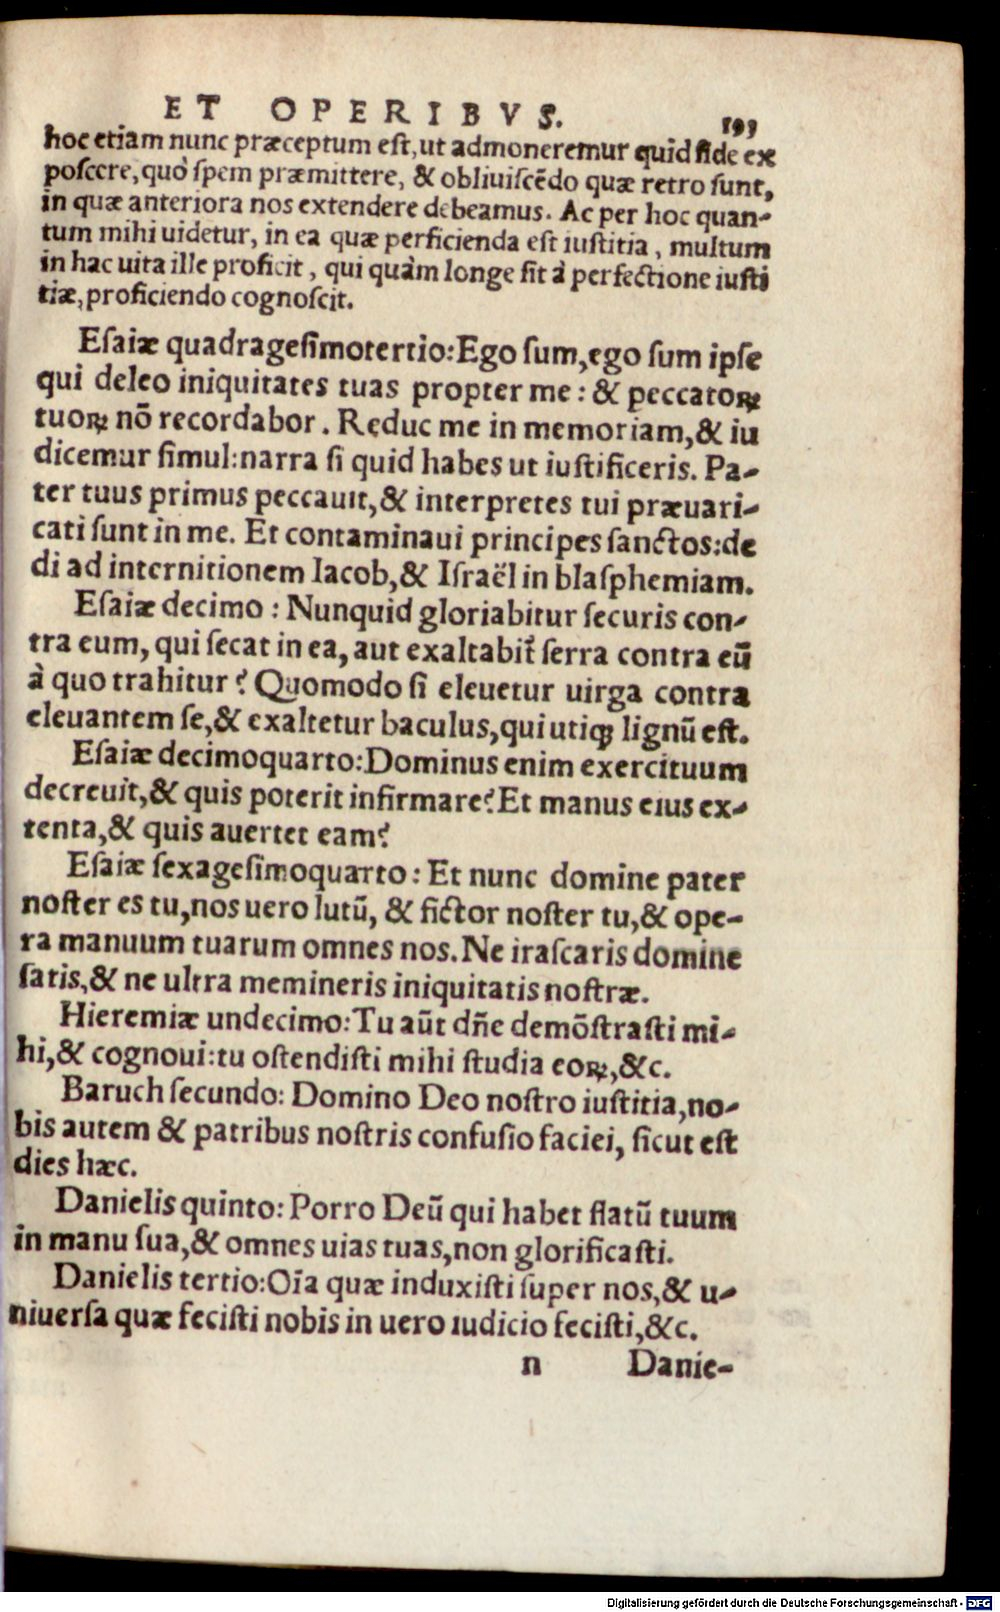 ET OPERIBVS. 193
hoc etiam nunc præceptum est, ut admoneremur quid fide ex
poscere, quò spem præmittere, & obliuiscẽdo quæ retro sunt,
in quæ anteriora nos extendere debeamus. Ac per hoc quan-
tum mihi uidetur, in ea quæ perficienda est iustitia, multum
in hac uita ille proficit, qui quàm longe sit à perfectione iusti
tiæ, proficiendo cognoscit.
Esaiæ quadragesimotertio: Ego sum, ego sum ipse
qui deleo iniquitates tuas propter me: & peccatoꝝ
tuoꝝ nõ recordabor. Reduc me in memoriam, & iu
dicemur simul: narra si quid habes ut iustificeris. Pa-
ter tuus primus peccauit, & interpretes tui præuari-
cati sunt in me. Et contaminaui principes sanctos: de
di ad internitionem Iacob, & Israël in blasphemiam.
Esaiæ decimo: Nunquid gloriabitur securis con-
tra eum, qui secat in ea, aut exaltabit̃ serra contra eũ
à quo trahitur? Quomodo si eleuetur uirga contra
eleuantem se, & exaltetur baculus, qui utiqꝫ lignũ est.
Esaiæ decimoquarto: Dominus enim exercituum
decreuit, & quis poterit infirmare? Et manus eius ex-
tenta, & quis auertet eam?
Esaiæ sexagesimoquarto: Et nunc domine pater
noster es tu, nos uero lutũ, & fictor noster tu, & ope-
ra manuum tuarum omnes nos. Ne irascaris domine
satis, & ne ultra memineris iniquitatis nostræ.
Hieremiæ undecimo: Tu aũt dñe demõstrasti mi-
hi, & cognoui: tu ostendisti mihi studia eoꝝ, &c.
Baruch secundo: Domino Deo nostro iustitia, no-
bis autem & patribus nostris confusio faciei, sicut est
dies hæc.
Danielis quinto: Porro Deũ qui habet flatũ tuum
in manu sua, & omnes uias tuas, non glorificasti.
Danielis tertio: Oĩa quæ induxisti super nos, & u-
niuersa quæ fecisti nobis in uero iudicio fecisti, &c.
n Danie-
Digitalisierung gefördert durch die Deutsche Forschungsgemeinschaft - DFG